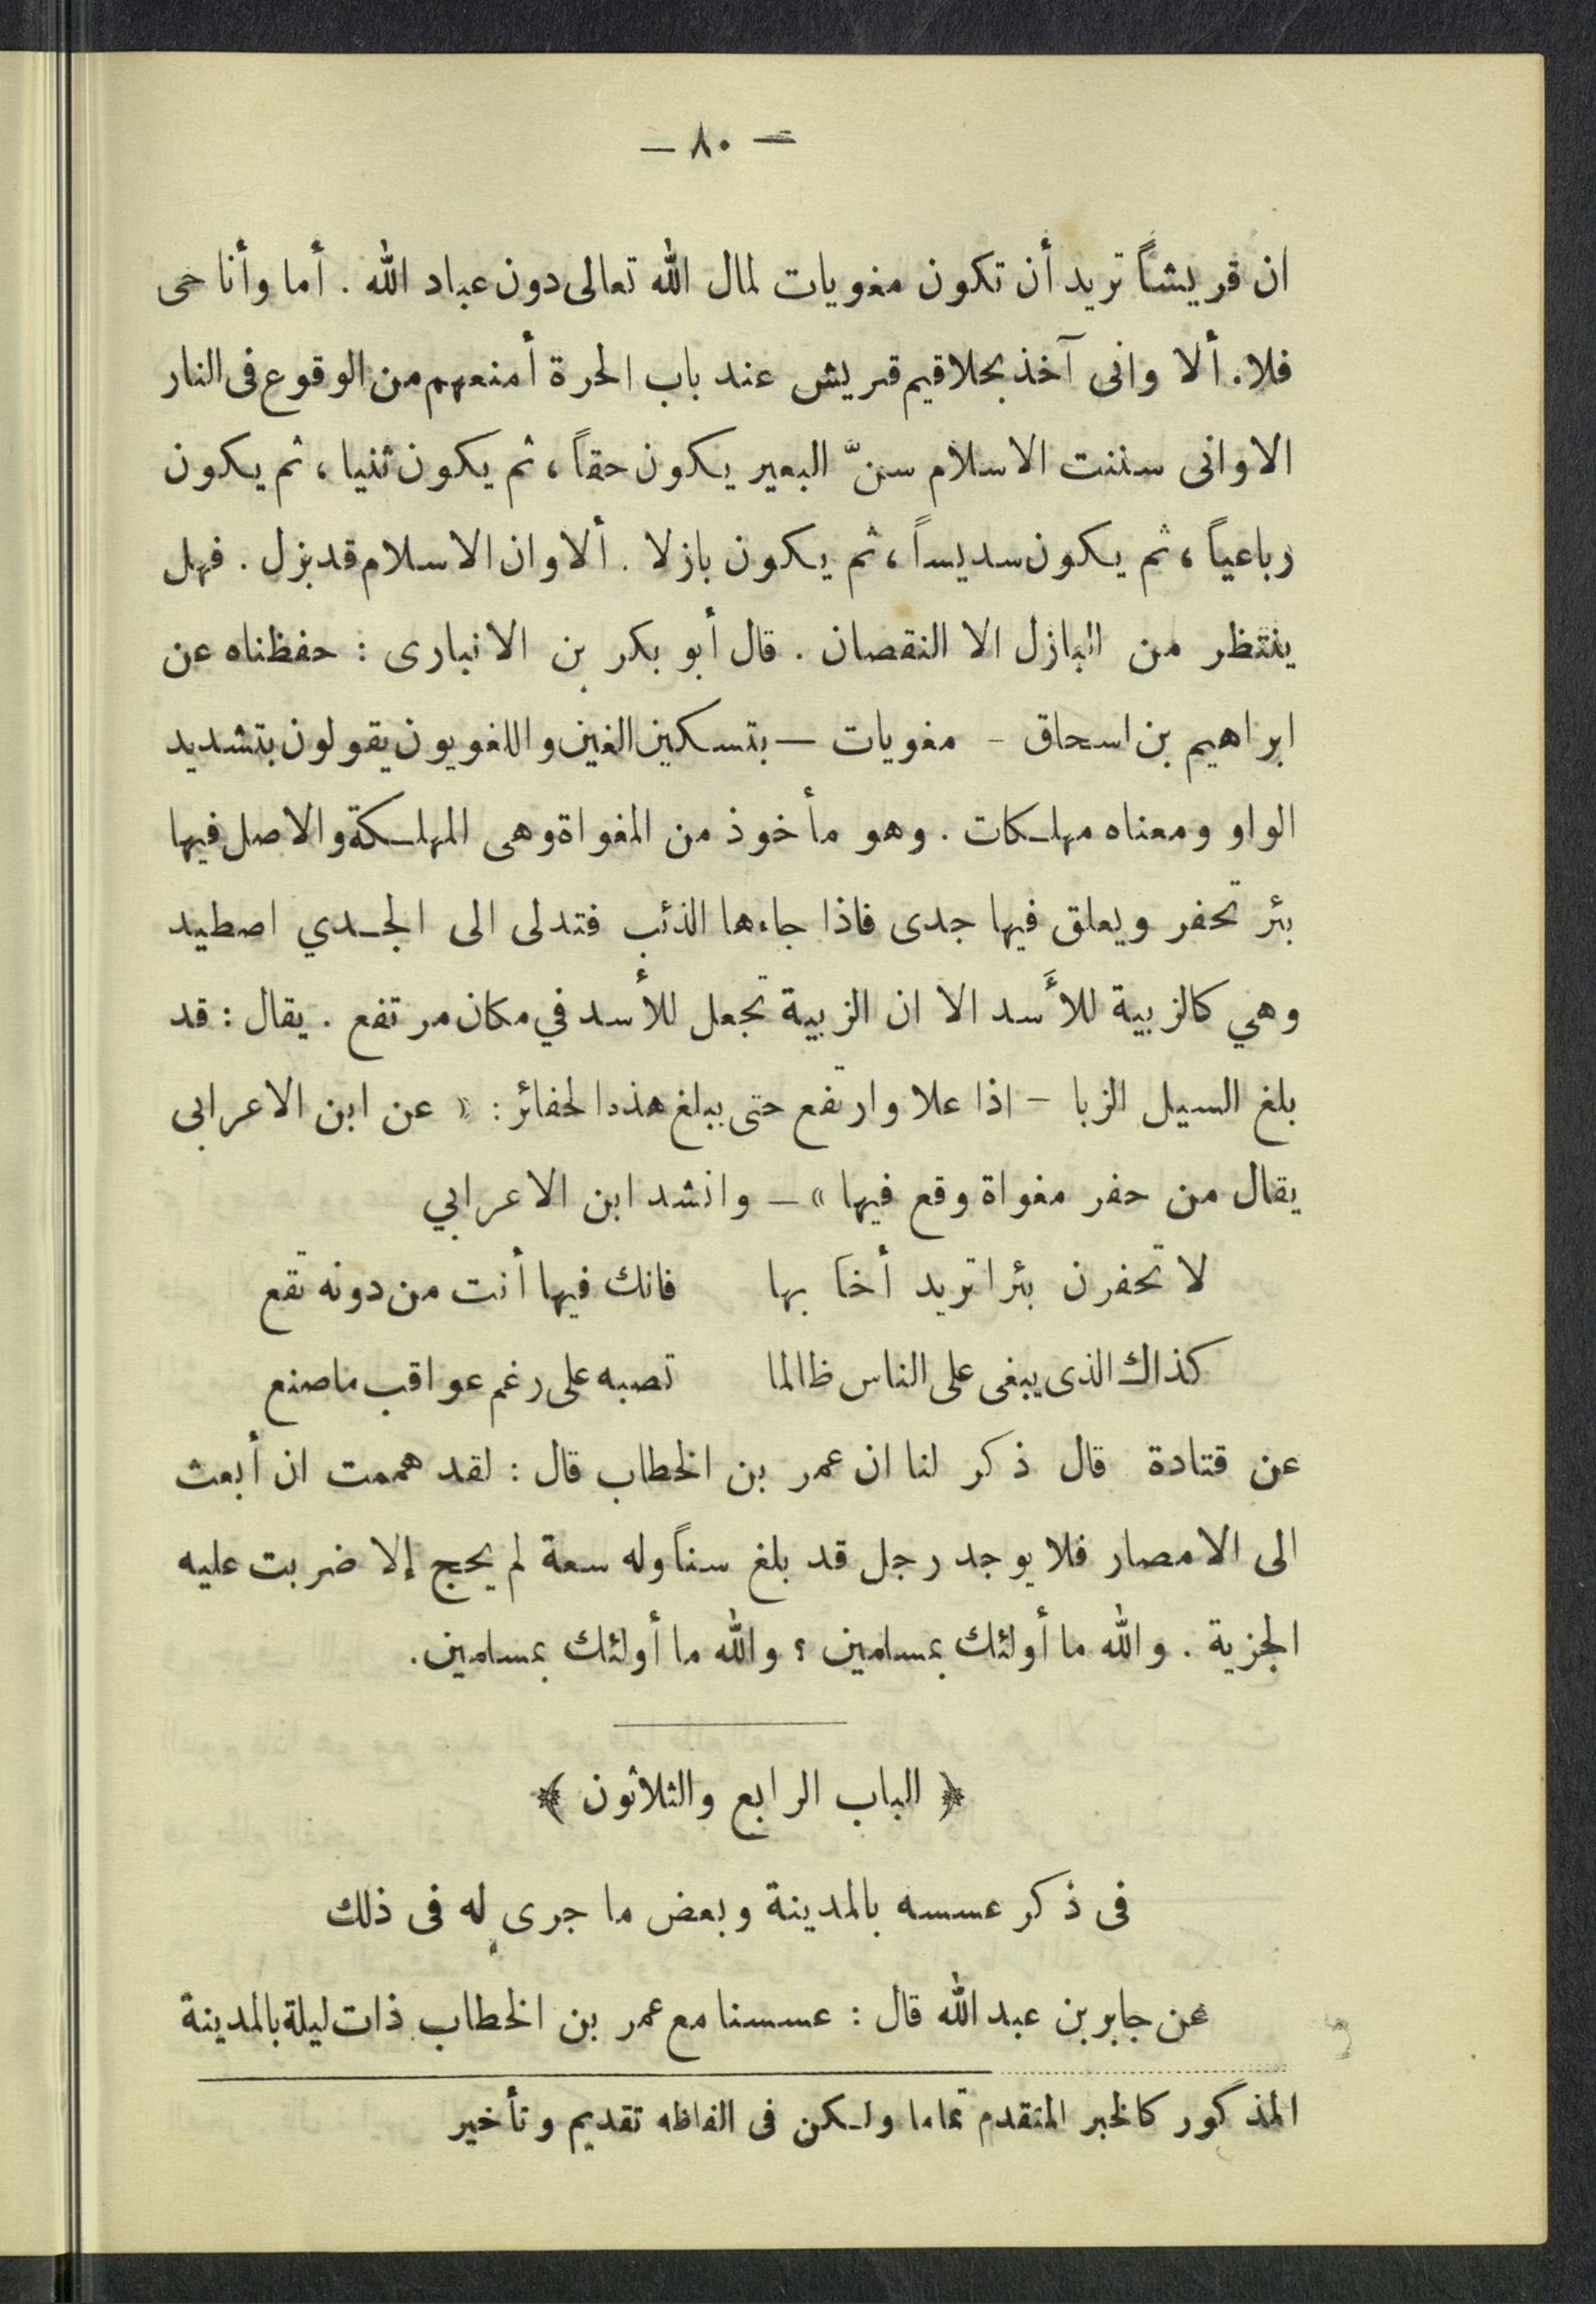 — ٨٠ —
ان قريشاً تريد أن تكون مغويات لمال الله تعالى دون عباد الله . أما وأنا حى
فلا. ألا وانى آخذ بحلاقيم قريش عند باب الحرة أمنعهم من الوقوع فى النار
الا وانى سننت الاسلام سنّ البعير يكون حقاً ، ثم يكون ثنيا ، ثم يكون
رباعياً ، ثم يكون سديساً ، ثم يكون بازلا . ألا وان الاسلام قد بزل . فهل
ينتظر من البازل الا النقصان . قال أبو بكر بن الانبارى : حفظناه عن
ابراهيم بن اسحاق - مغويات — بتسكين الغين واللغويون يقولون بتشديد
الواو ومعناه مهلكات . وهو مأخوذ من المغواة وهى المهلكة والاصل فيها
بئر تحفر ويعلق فيها جدى فاذا جاءها الذئب فتدلى الى الجدي اصطيد
وهي كالزبية للأسد الا ان الزبية تجعل للأسد في مكان مرتفع . يقال : قد
بلغ السيل الزبا - اذا علا وارتفع حتى يبلغ هذه الحفائر : « عن ابن الاعرابى
يقال من حفر مغواة وقع فيها » — وانشد ابن الاعرابي
لا تحفرن بئرا تريد أخا بها فانك فيها أنت من دونه تقع
كذاك الذى يبغى على الناس ظالما تصبه على رغم عواقب ما صنع
عن قتادة قال ذكر لنا ان عمر بن الخطاب قال : لقد هممت ان أبعث
الى الامصار فلا يوجد رجل قد بلغ سناً وله سعة لم يحج إلا ضربت عليه
الجزية . والله ما أولئك بمسلمين ؟ والله ما أولئك بمسلمين.
﴿ الباب الرابع والثلاثون ﴾
فى ذكر عسسه بالمدينة وبعض ما جرى له فى ذلك
عن جابر بن عبد الله قال : عسسنا مع عمر بن الخطاب ذات ليلة بالمدينة
المذكور كالخبر المتقدم تماما ولكن فى الفاظه تقديم وتأخير